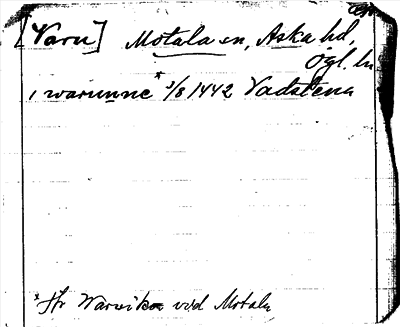 [Varu] Motala sn, Aska hd,
Ögl. ln
i warunne* 3/8 1442 Vadstena
* Jfr Warviken vid Motala